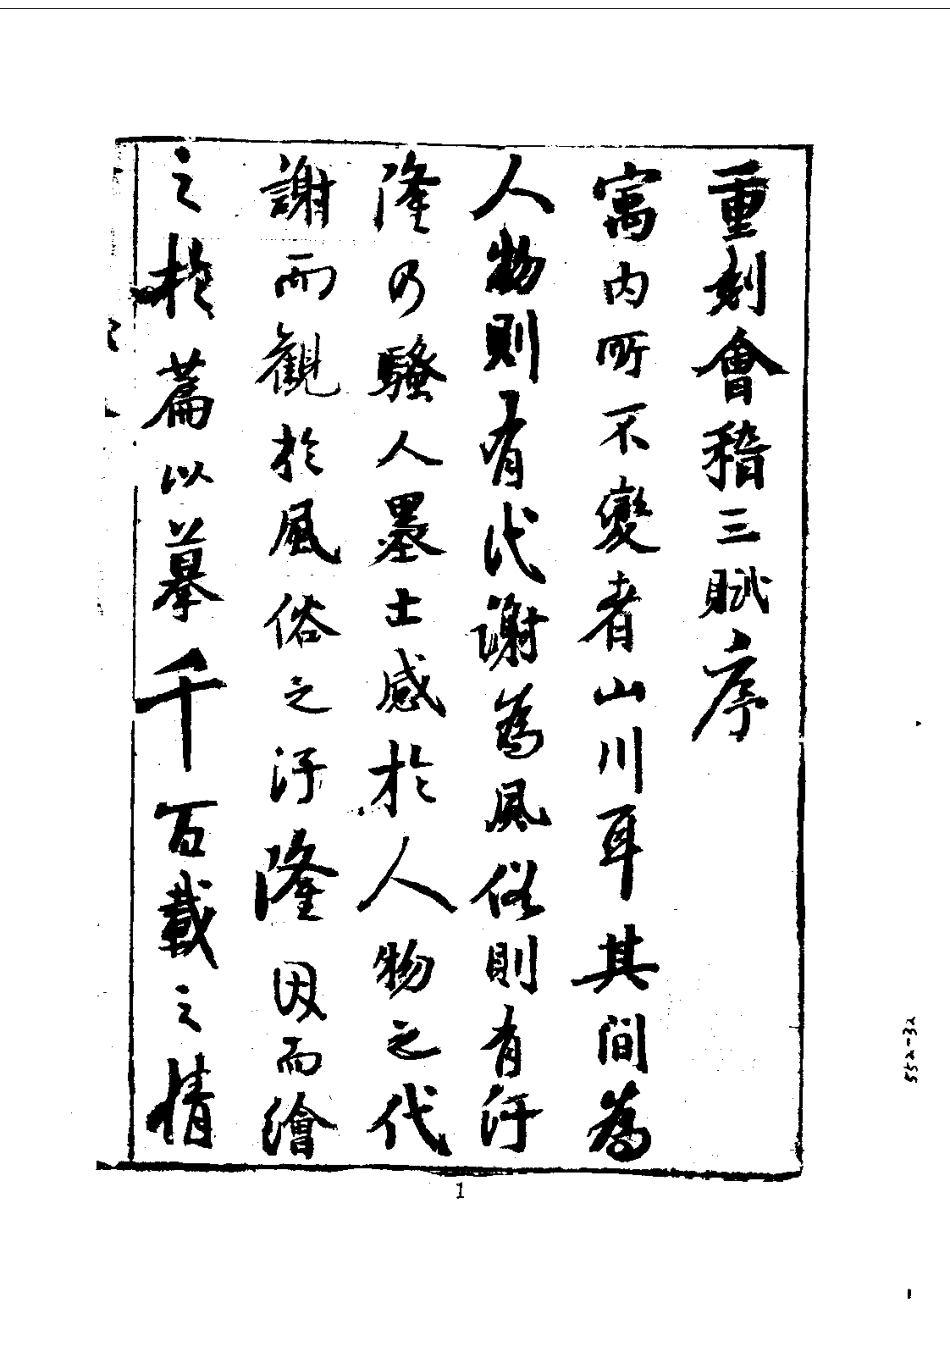 重刻會稽三賦序
寓內所不變者山川耳其間為
人物則有代謝為風俗則有汙
隆乃騷人墨士感於人物之代
謝而觀於風俗之汙隆因而繪
之於篇以摹千百載之情
1
552-32
1